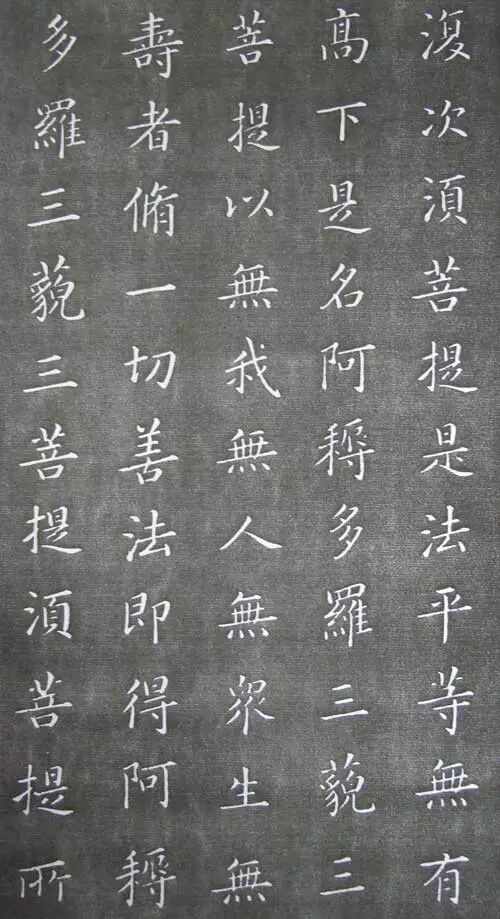 復次須菩提是法平等無有
高下是名阿耨多羅三藐三
菩提以無我無人無衆生無
壽者脩一切善法即得阿耨
多羅三藐三菩提須菩提所